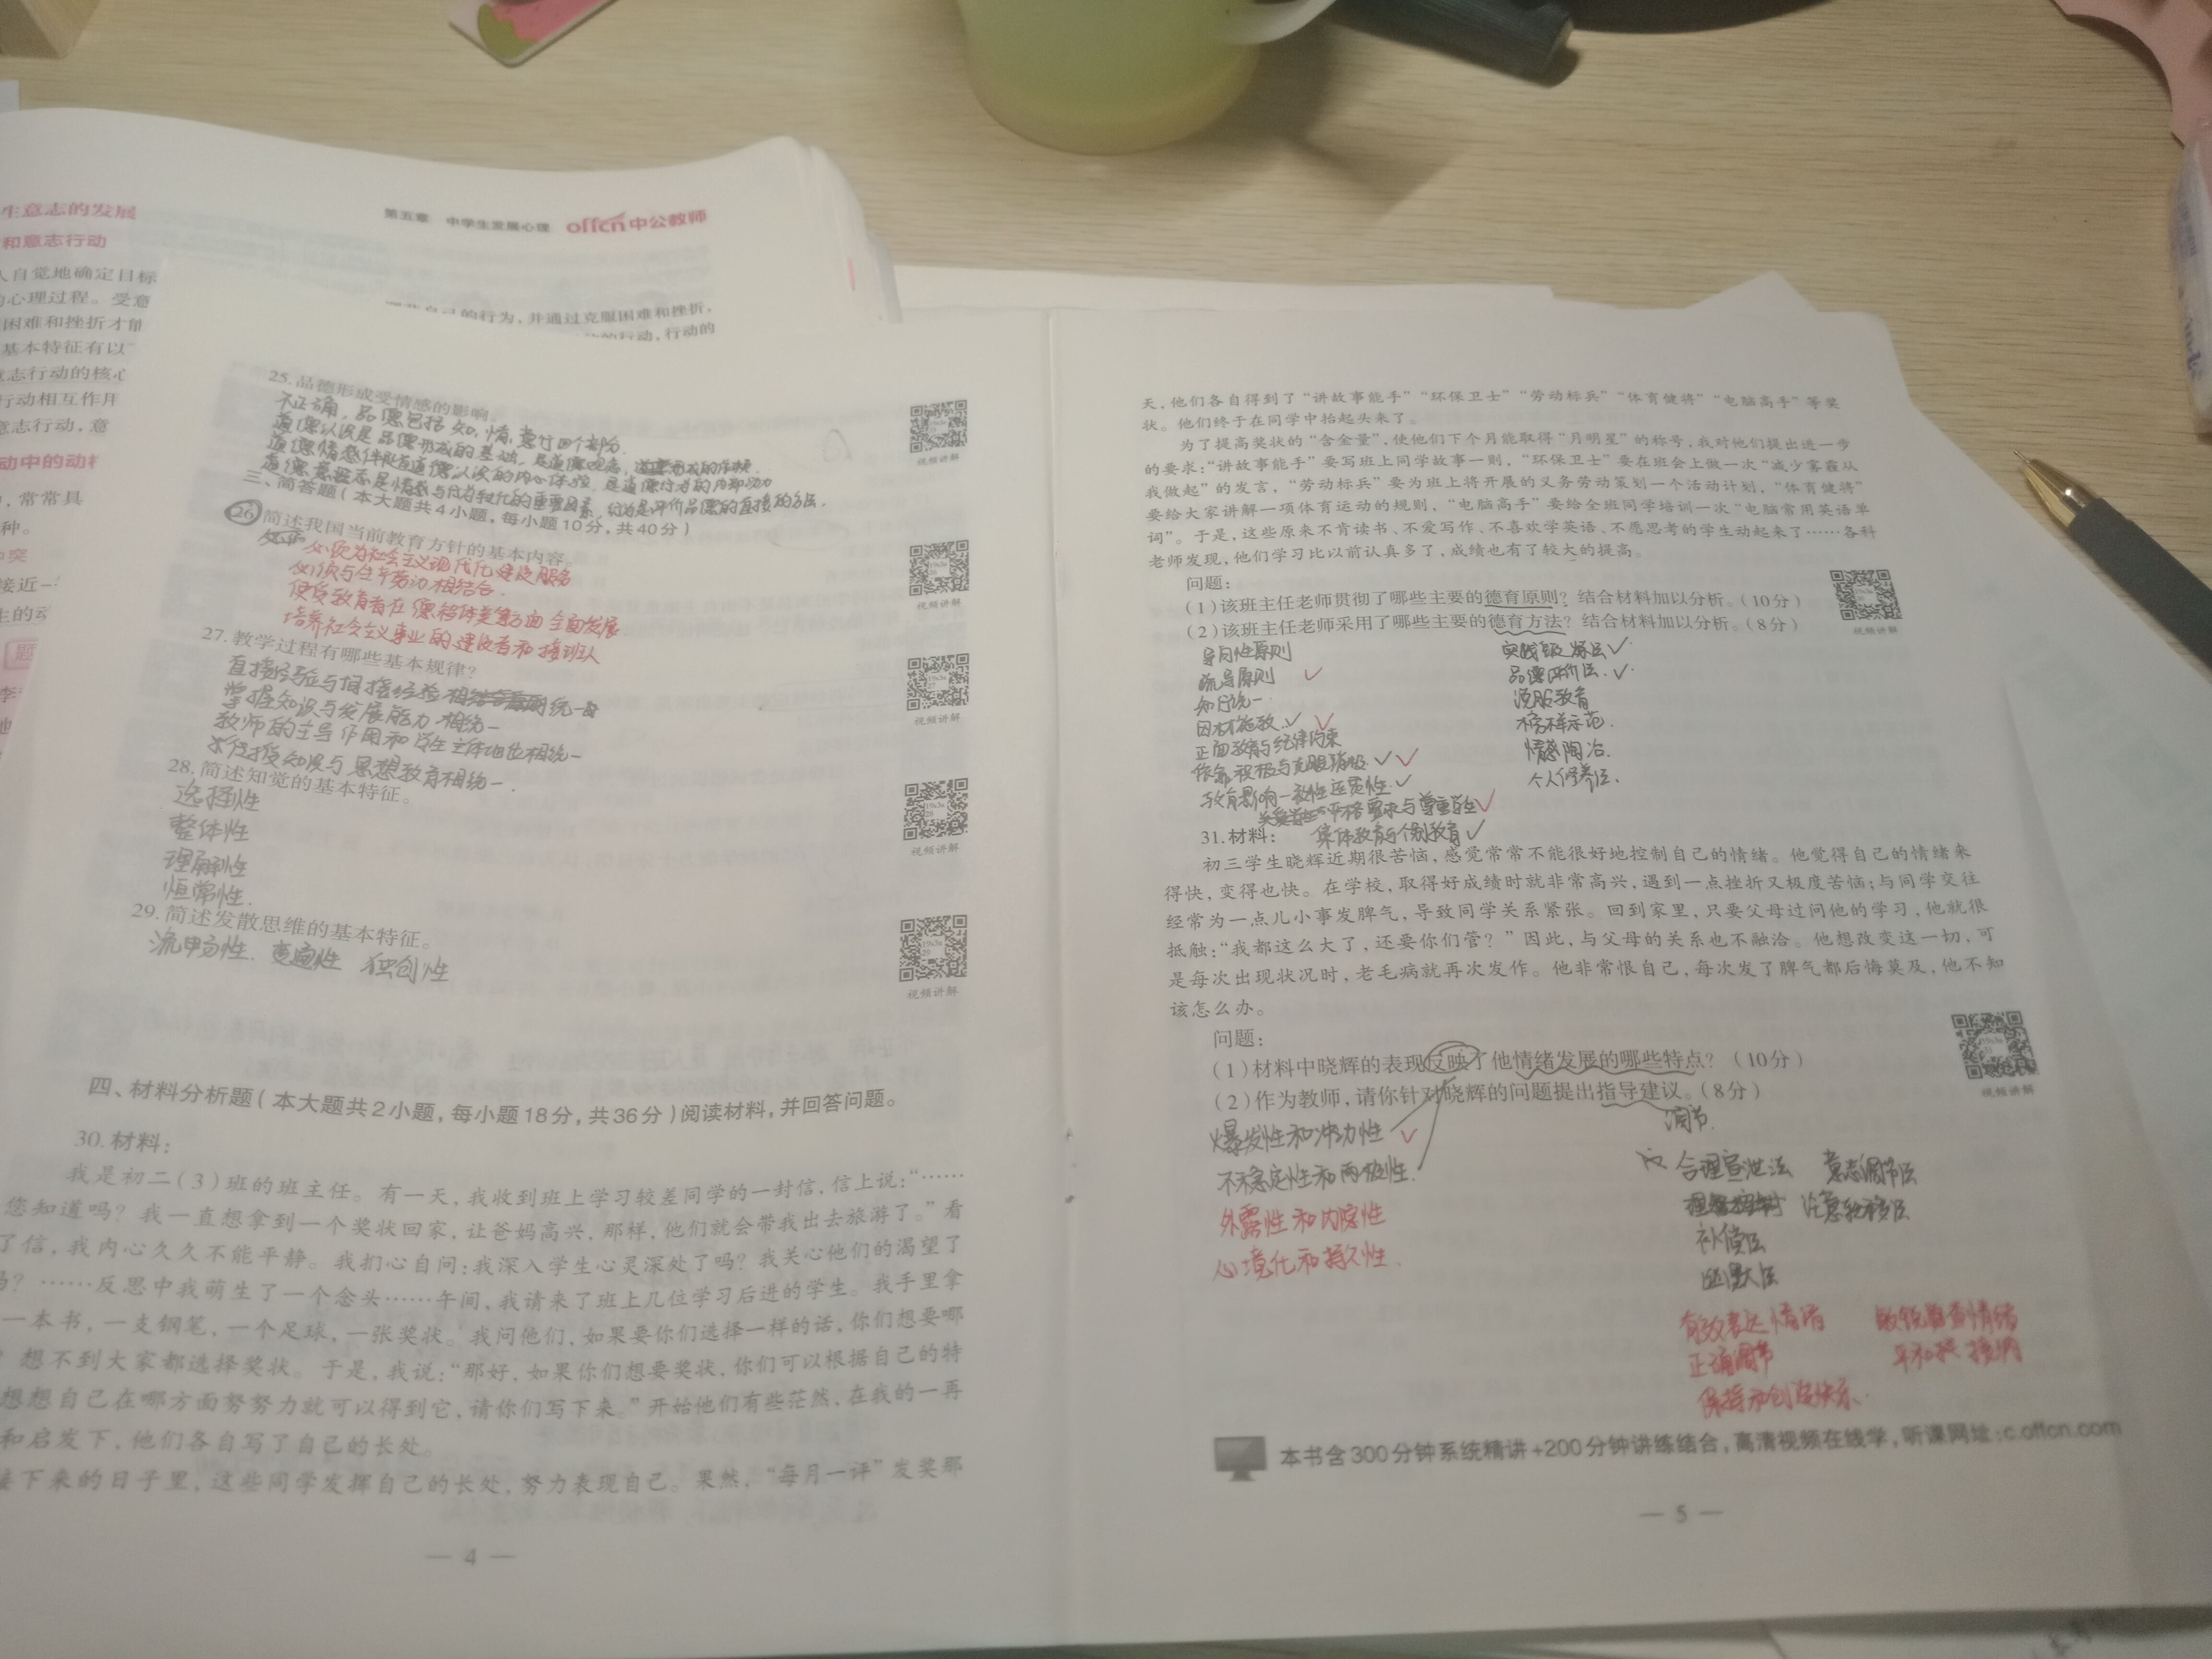 生意志的发展
和意志行动
人自觉地确定目标
的心理过程。受意
困难和挫折才能
基本特征有以
意志行动的核心
行动相互作用
意志行动,意
动中的动机
常常具
种。
突
接近一
生的动
题
第五章 中学生发展心理 offcn中公教师
自己的行为,并通过克服困难和挫折,
的行动,行动的
25.品德形成受情感的影响。
不正确,品德包括知,情,意行四个部分.
道德认识是品德形成的基础,是道德观念,
道德情感伴随着道德认识的内心体验,是道德行为的内部动力
道德意志是情感与行为转化的重要因素,行为是评价品德的直接的方法.
视频讲解
三、简答题(本大题共4小题,每小题10分,共40分)
26.简述我国当前教育方针的基本内容。
必须为社会主义现代化建设服务
必须与生产劳动相结合.
使受教育者在德智体美等方面全面发展
培养社会主义事业的建设者和接班人
视频讲解
27.教学过程有哪些基本规律?
直接经验与间接经验相统一
掌握知识与发展能力相统一
教师的主导作用和学生主体地位相统一
传授知识与思想教育相统一.
视频讲解
28.简述知觉的基本特征。
选择性
整体性
理解性
恒常性.
视频讲解
29.简述发散思维的基本特征。
流畅性.变通性 独创性
视频讲解
四、材料分析题(本大题共2小题,每小题18分,共36分)阅读材料,并回答问题。
30.材料:
我是初二(3)班的班主任。有一天,我收到班上学习较差同学的一封信,信上说:“……
您知道吗?我一直想拿到一个奖状回家,让爸妈高兴,那样,他们就会带我出去旅游了。”看
了信,我内心久久不能平静。我扪心自问:我深入学生心灵深处了吗?我关心他们的渴望了
吗?……反思中我萌生了一个念头……午间,我请来了班上几位学习后进的学生。我手里拿
一本书,一支钢笔,一个足球,一张奖状。我问他们,如果要你们选择一样的话,你们想要哪
想不到大家都选择奖状。于是,我说:“那好,如果你们想要奖状,你们可以根据自己的特
想想自己在哪方面努努力就可以得到它,请你们写下来。”开始他们有些茫然,在我的一再
和启发下,他们各自写了自己的长处。
接下来的日子里,这些同学发挥自己的长处,努力表现自己。果然,“每月一评”发奖那
— 4 —
天,他们各自得到了“讲故事能手”“环保卫士”“劳动标兵”“体育健将”“电脑高手”等奖
状。他们终于在同学中抬起头来了。
为了提高奖状的“含金量”,使他们下个月能取得“月明星”的称号,我对他们提出进一步
的要求:“讲故事能手”要写班上同学故事一则,“环保卫士”要在班会上做一次“减少雾霾从
我做起”的发言,“劳动标兵”要为班上将开展的义务劳动策划一个活动计划,“体育健将”
要给大家讲解一项体育运动的规则,“电脑高手”要给全班同学培训一次“电脑常用英语单
词”。于是,这些原来不肯读书、不爱写作、不喜欢学英语、不愿思考的学生动起来了……各科
老师发现,他们学习比以前认真多了,成绩也有了较大的提高。
问题:
(1)该班主任老师贯彻了哪些主要的德育原则?结合材料加以分析。(10分)
(2)该班主任老师采用了哪些主要的德育方法?结合材料加以分析。(8分)
视频讲解
导向性原则
疏导原则
知行统一
因材施教
正面教育与纪律约束
依靠积极与克服消极
教育影响一致性连贯性
严格要求与尊重学生
集体教育与个别教育
实践锻炼法
品德评价法
说服教育
榜样示范.
情感陶冶.
个人修养法.
31.材料:
初三学生晓辉近期很苦恼,感觉常常不能很好地控制自己的情绪。他觉得自己的情绪来
得快,变得也快。在学校,取得好成绩时就非常高兴,遇到一点挫折又极度苦恼;与同学交往
经常为一点儿小事发脾气,导致同学关系紧张。回到家里,只要父母过问他的学习,他就很
抵触:“我都这么大了,还要你们管?”因此,与父母的关系也不融洽。他想改变这一切,可
是每次出现状况时,老毛病就再次发作。他非常恨自己,每次发了脾气都后悔莫及,他不知
该怎么办。
问题:
(1)材料中晓辉的表现反映了他情绪发展的哪些特点?(10分)
(2)作为教师,请你针对晓辉的问题提出指导建议。(8分)
视频讲解
调节.
爆发性和冲动性
不稳定性和两极性.
外露性和内隐性
心境化和持久性.
合理宣泄法 意志调节法
注意转移法
补偿法
幽默法
有效表达情绪 敏锐觉查情绪
正确调节
保持和创造快乐.
本书含300分钟系统精讲+200分钟讲练结合,高清视频在线学,听课网址:c.offcn.com
— 5 —